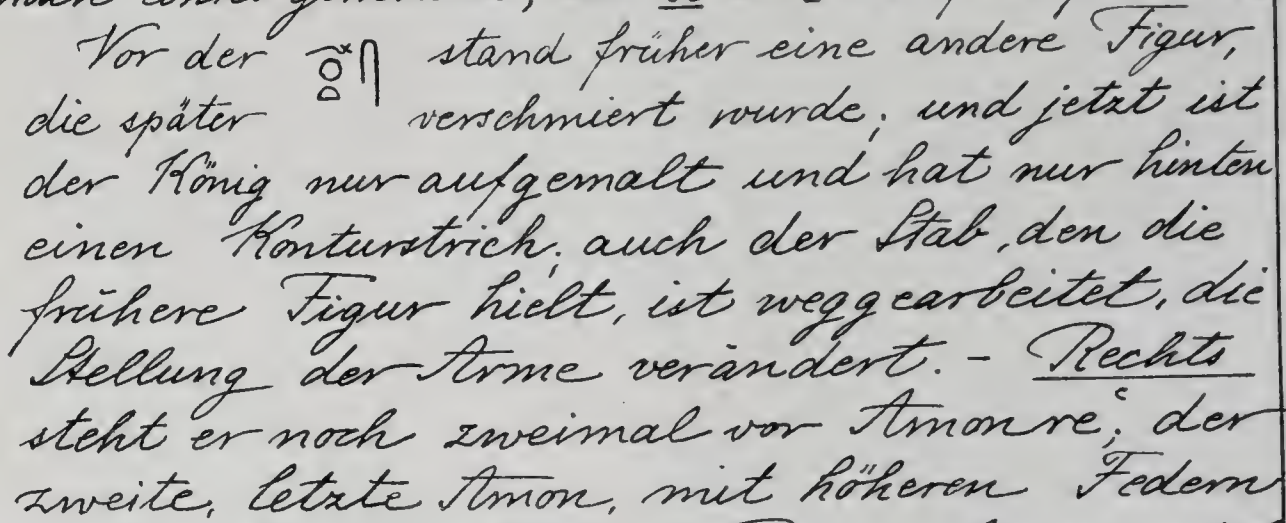 Vor der stand früher eine andere Figur,
die später verschmiert wurde; und jetzt ist
der König nur aufgemalt und hat nur hinten
einen Konturstrich; auch der Stab, den die
frühere Figur hielt, ist weggearbeitet, die
Stellung der Arme verändert. - Rechts
steht er noch zweimal vor Amonreꜥ; der
zweite, letzte Amon, mit höheren Federn